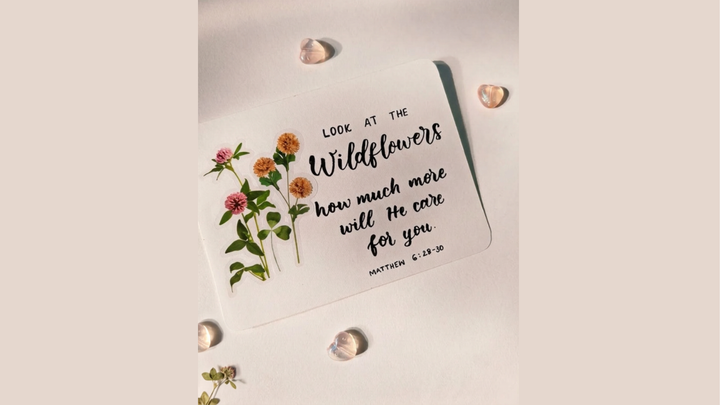 LOOK AT THE
Wildflowers
how much more
will He care
for you.
MATTHEW 6:28-30